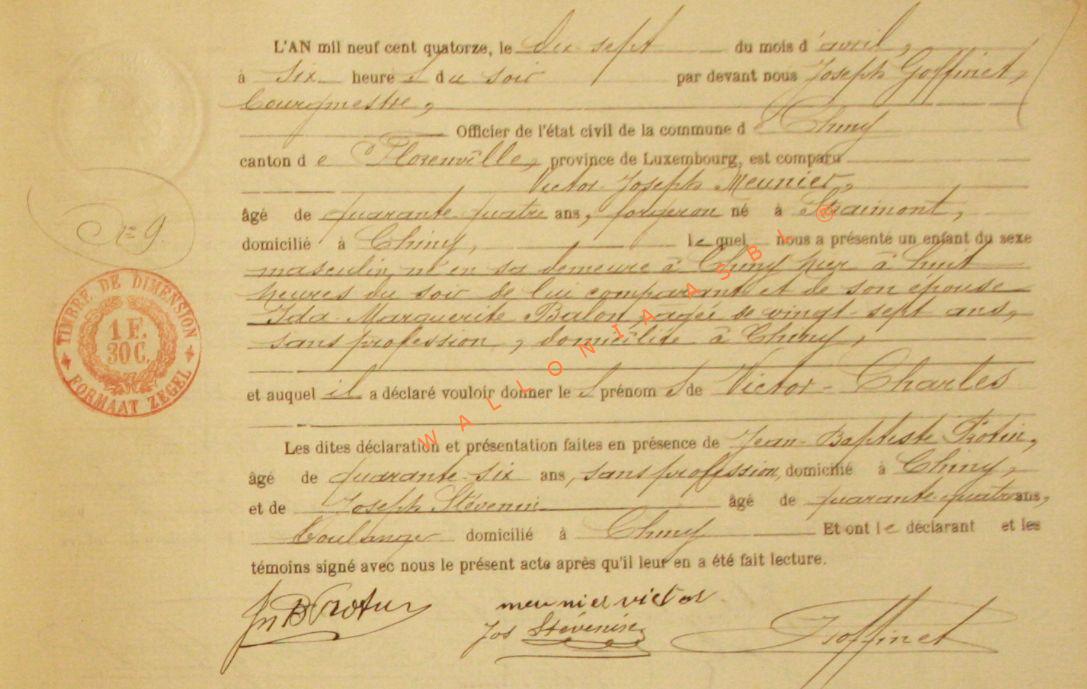 L'AN mil neuf cent quatorze, le dix sept du mois d'avril,
à six heure s du soir par devant nous Joseph Goffinet,
bourgmestre,
Officier de l'état civil de la commune d e Chiny
canton d e Florenville, province de Luxembourg, est comparu
Victor Joseph Meunier,
âgé de quarante quatre ans, forgeron né à Straimont,
domicilié à Chiny, le quel nous a présenté un enfant du sexe
masculin, né en sa demeure à Chiny hier à huit
heures du soir de lui comparant et de son épouse
Ida Marguerite Balon, agée de vingt-sept ans,
sans profession, domiciliée à Chiny,
et auquel il a déclaré vouloir donner le s prénom s de Victor-Charles
Les dites déclaration et présentation faites en présence de Jean-Baptiste
âgé de quarante-six ans, sans profession, domicilié à Chiny,
et de Joseph Stévenin âgé de quarante quatre ans,
boulanger domicilié à Chiny Et ont le déclarant et les
témoins signé avec nous le présent acte après qu'il leur en a été fait lecture.
N° 9
TIMBRE DE DIMENSION
1 F.
30 C.
FORMAAT ZEGEL
WALLONIA ASBL ©
meunier victor
Jos Stévenin
Goffinet